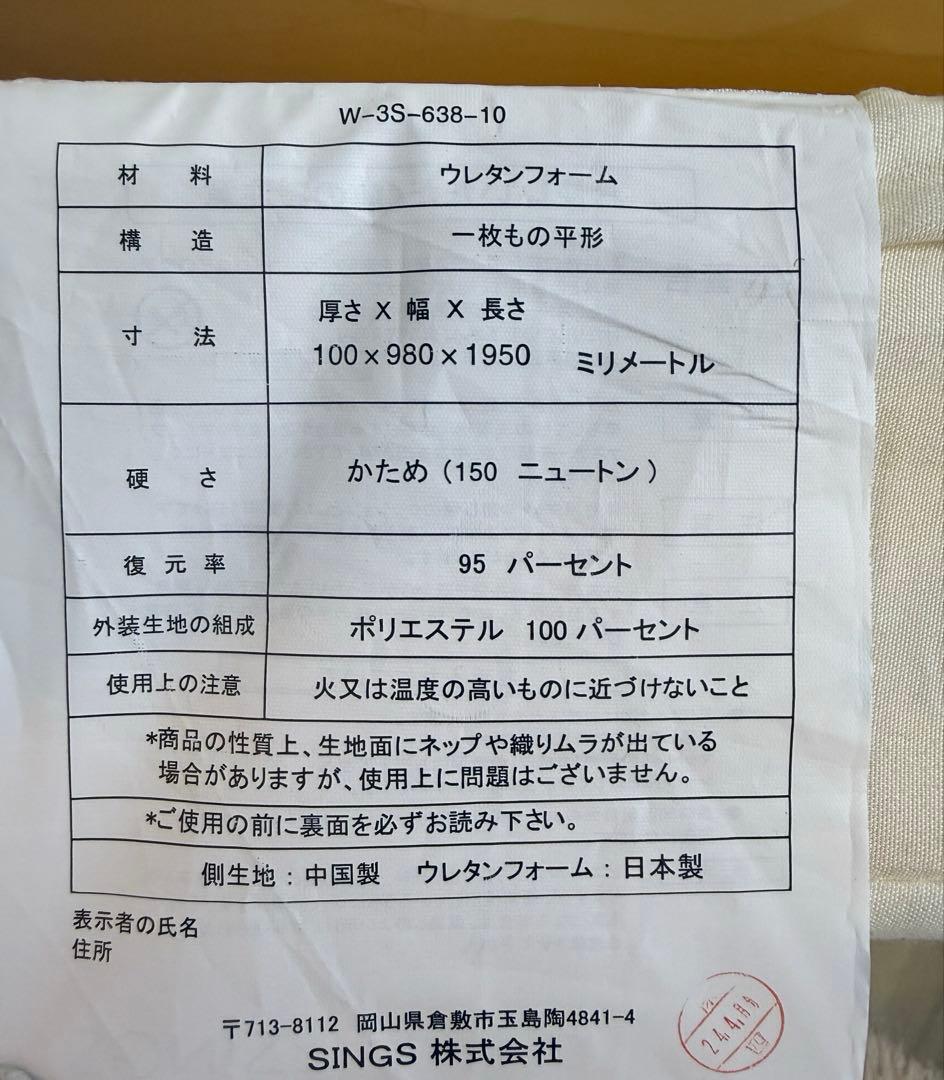 W-3S-638-10
材　料　ウレタンフォーム
構　造　一枚もの平形
寸　法　厚さ X 幅 X 長さ
100×980×1950　ミリメートル
硬　さ　かため（150 ニュートン）
復 元 率　95 パーセント
外装生地の組成　ポリエステル 100 パーセント
使用上の注意　火又は温度の高いものに近づけないこと
*商品の性質上、生地面にネップや織りムラが出ている
場合がありますが、使用上に問題はございません。
*ご使用の前に裏面を必ずお読み下さい。
側生地：中国製　ウレタンフォーム：日本製
表示者の氏名
住所
〒713-8112 岡山県倉敷市玉島陶4841-4
SINGS 株式会社
24.4.